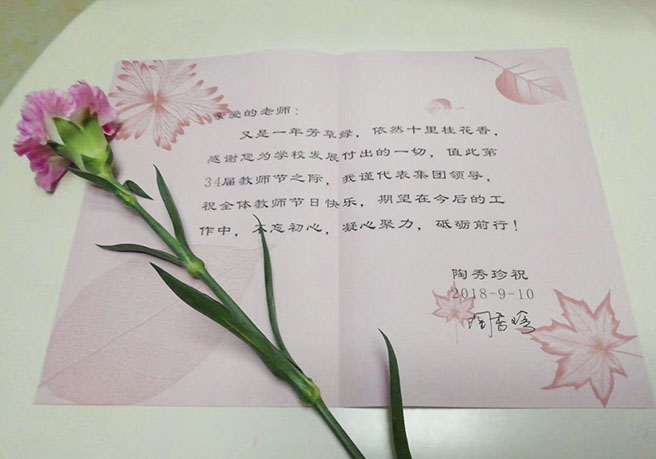 亲爱的老师：
又是一年芳草绿，依然十里桂花香，
感谢您为学校发展付出的一切，值此第
34届教师节之际，我谨代表集团领导，
祝全体教师节日快乐，期望在今后的工
作中，不忘初心，凝心聚力，砥砺前行！
陶秀珍祝
2018-9-10